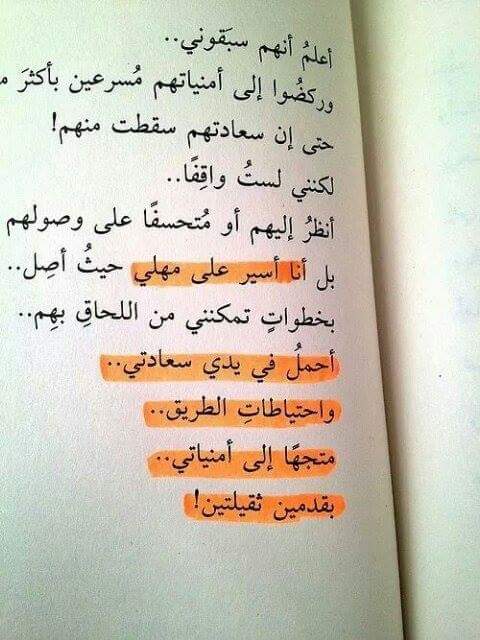 أعلمُ أنهم سبَقوني..
وركضُوا إلى أمنياتهم مُسرعين بأكثرَ
حتى إن سعادتهم سقطت منهم!
لكنني لستُ واقِفًا..
أنظرُ إليهم أو مُتحسفًا على وصولهم
بل أنا أسير على مهلي حيثُ أصِل..
بخطواتٍ تمكنني من اللحاقِ بهِم..
أحملُ في يدي سعادتي..
واحتياطاتِ الطريق..
متجهًا إلى أمنياتي..
بقدمين ثقيلتين!